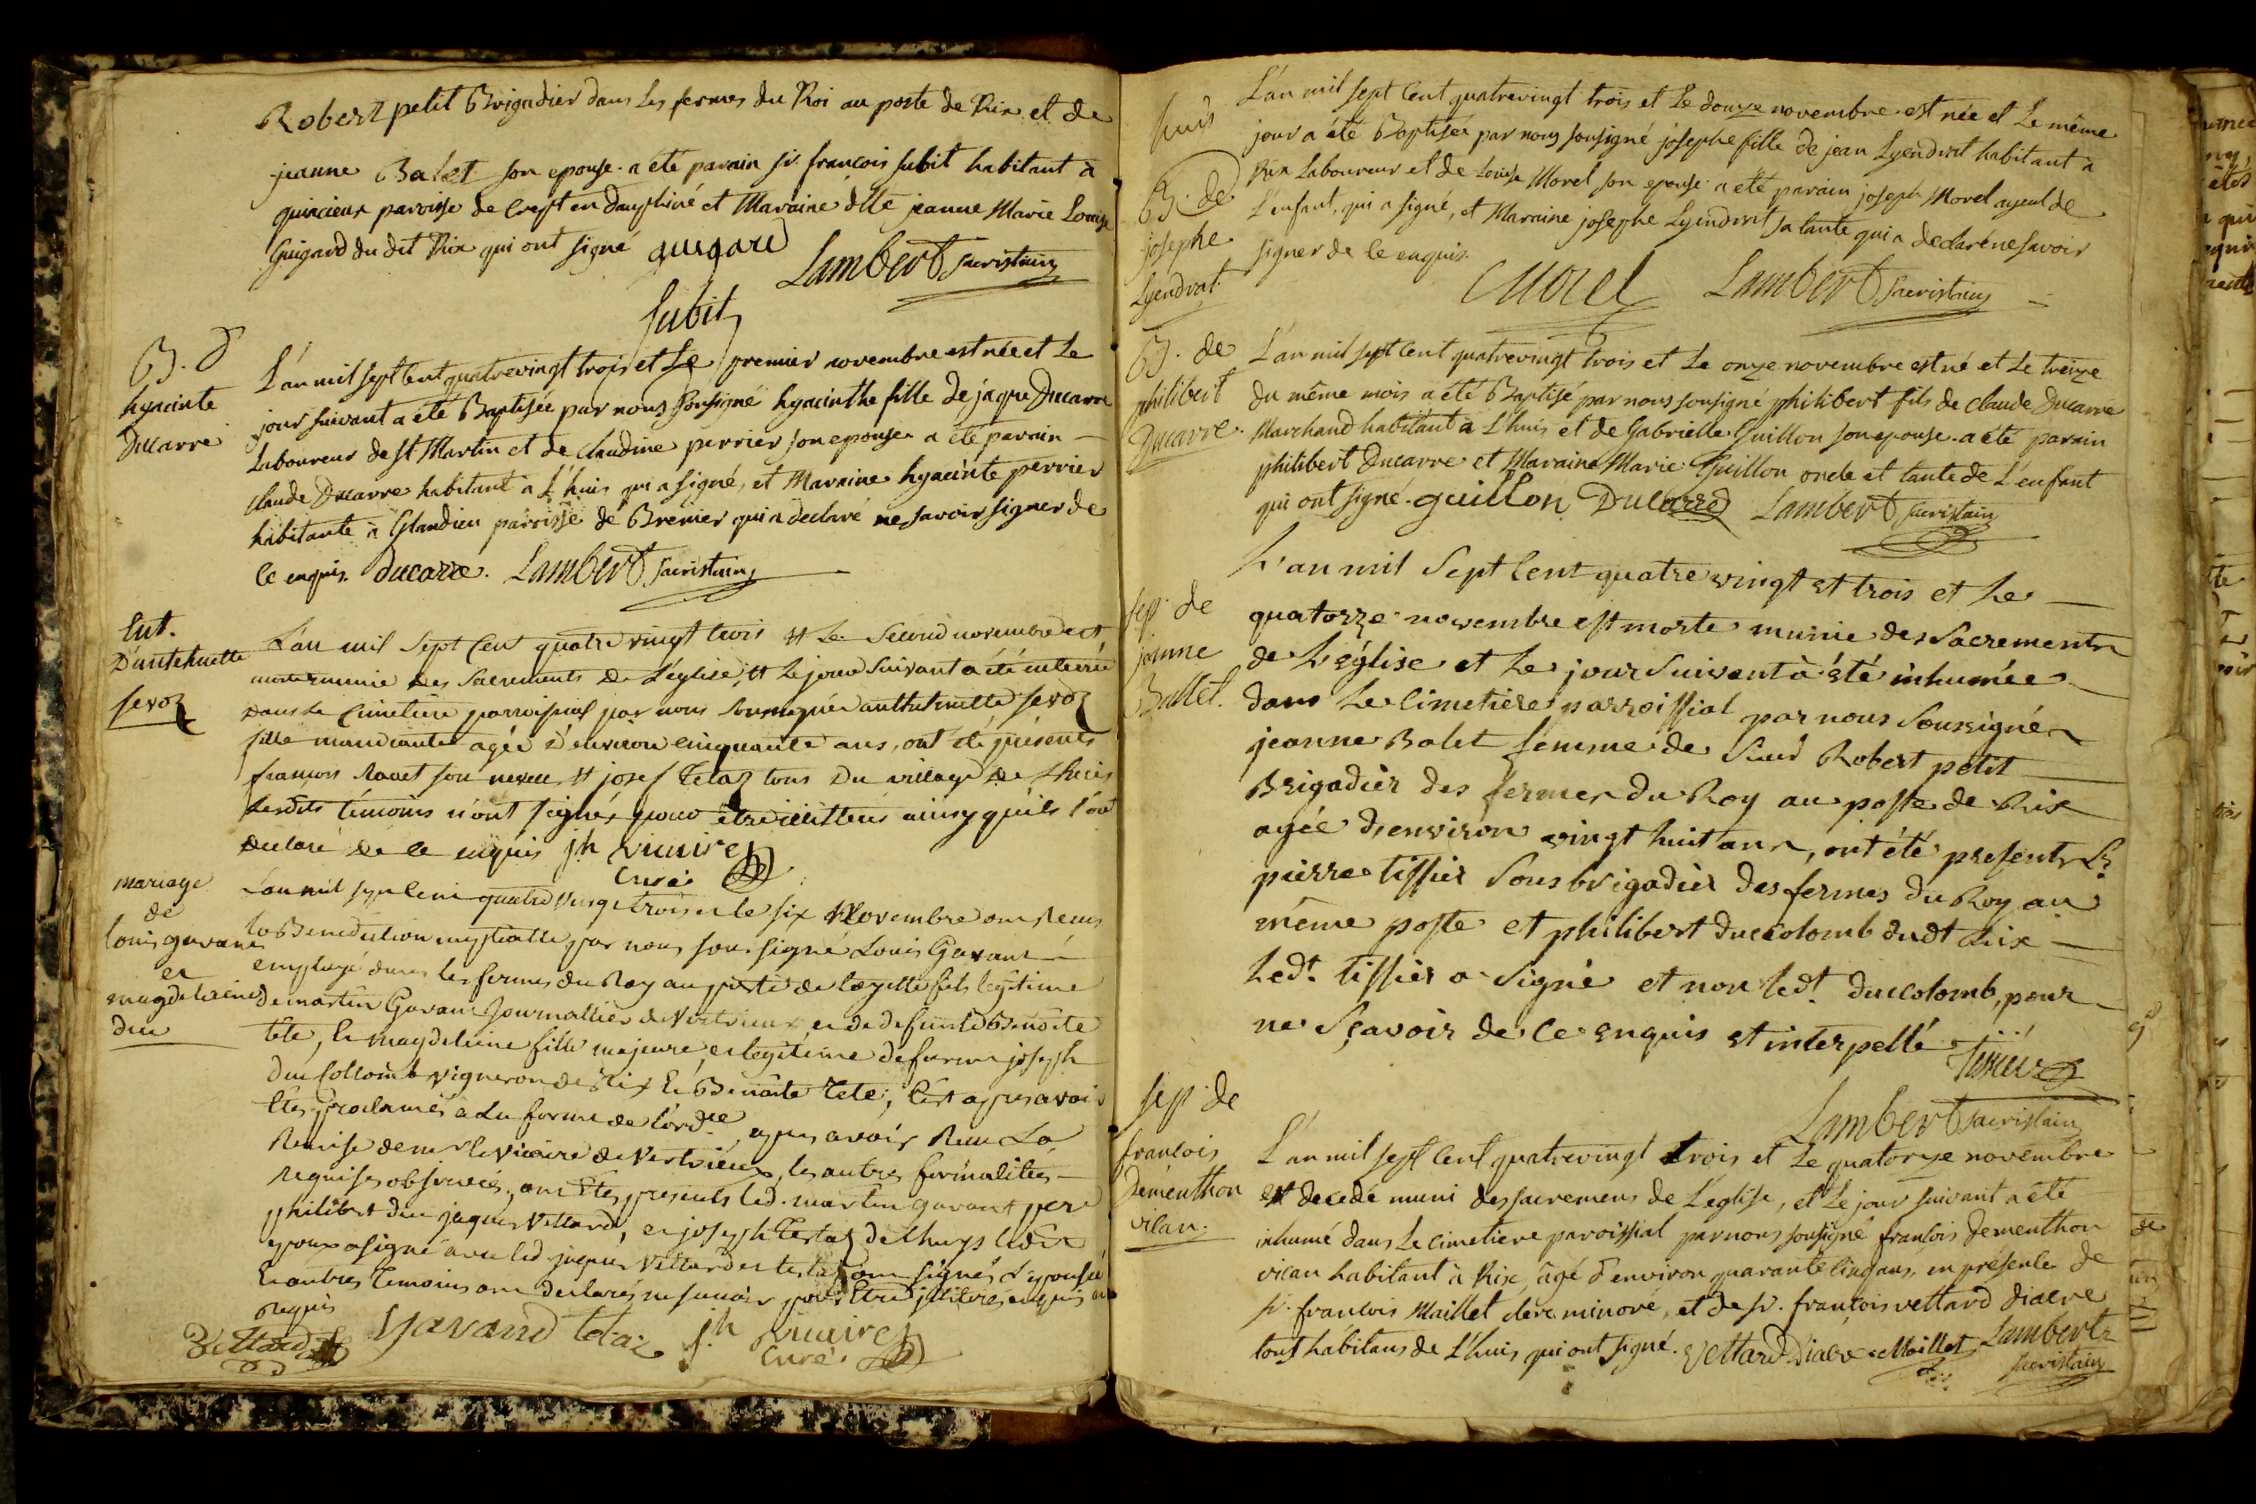 Robert petit Brigadier dans les fermes du Roi au poste de Rix et de
jeanne Balet son epouse. a été parain sr. francois Subit habitant à
quincieux paroisse de Crept en dauphiné et Maraine dlle jeanne Marie Louise
Guigard du dit Rix qui ont signé guigard
Lambert sacristain
Subit
B. d
hyacinte
Ducarre
L'an mil sept Cent quatrevingt trois et Le premier novembre est née et Le
jour suivant a été Baptisée par nous sousigné hyacinthe fille de jaque Ducarre
Laboureur de st Martin et de Claudine perrier son epouse. a été parain
Claude Ducarre habitant a L'huis qui a signé, et Maraine hyacinte perrier
habitante à Glandieu paroisse de Brenier qui a declaré ne savoir signer de
Ce enquis. ducarre. Lambert sacristain
Ent.
D'antehnette
sevoz
L'an mil sept Cent quatre vingt trois et Le Second novembre est
morte munie des Sacrements De L'église, et Lejour Suivant a été enterrée
Dans Le Cimetiere parroissial par nous Soussigné anthehnette sevoz
fille mandiante agée d'environ cinquante ans, ont été présents
francois Ravet son neveu, et josef Tetaz tous Du village de Lhuis
Lesdits témoins n'ont signés pour être illitteré ainsy qu'ils l'ont
Declaré de ce enquis jh vicaire
Curé
mariage
de
louis gavans
et
magdeleine
duc
L'an mil sept Cent quatre vingt trois et le six Novembre ont Reçus
la Benediction nuptialle par nous soussigné Louis Gavant
employé dans les fermes du Roy au poste de fils legitime
de martin Gavant Journallier de Vertrieux et de defunte Benoîte
tete, Et magdeleine fille majeure, et legitime de feu joseph
duc Collomb vigneron de Rix Et Benoîte Tete, Cest apres avoir
Etes proclamés a La forme de l'ordce, apres avoir Reçu La
Remise de mr le vicaire de Vertrieux, les autres formalités
requises observées, ont Etes presents led. martin gavant pere
philibert duc jaques Vettard, et joseph Tetaz de Lhuys ledit
epoux a signé avec led jaques Vettard et tetaz ont signés L'epouse
Et autres temoins ont declarés ne savoir pour Etre illitérés enquis et
Requis
Vettard Gavand tetaz jh vicaire
Curé
huis
B. de
josephe
Lyendrat.
L'an mil sept Cent quatrevingt trois et Le douze novembre est née et Le même
jour a été Baptisée par nous sousigné josephe fille de jean Lyendrat habitant a
Rix Laboureur et de Louise Morel son epouse. a été parain joseph Morel ayeul de
L'enfant, qui a signé, et Maraine josephe Lyendrat sa tante qui a declaré ne savoir
signer de Ce enquis.
Morel Lambert sacristain
B. de
philibert
Ducarre.
L'an mil sept Cent quatrevingt trois et Le onze novembre est né et Le treize
du même mois a été Baptisé par nous sousigné philibert fils de Claude Ducarre
Marchand habitant a L'huis et de Gabrielle Guillon son epouse. a été parain
philibert Ducarre et Maraine Marie Guillon oncle et tante de L'enfant
qui ont signé. guillon Ducarre Lambert sacristain
sep. de
jeanne
Ballet.
L'an mil Sept Cent quatre vingt et trois et Le
quatorze novembre est morte munie des Sacrements
de L'église et Le jour Suivant à été inhumée
dans Le Cimetiére parroissial par nous Soussigné
jeanne Balet femme de Sieur Robert petit
Brigadier des fermes du Roy au poste de Rix
agée d'environ vingt huit ans, ont été présents Sr
pierre tissier Sousbrigadier des fermes du Roy au
même poste et philibert duccolomb dudt Rix
Ledt. tissier a Signé et non ledt. duccolomb, pour
ne Sçavoir de Ce enquis et interpellé
Tissier
Lambert sacristain
sep de
francois
Dementhon
vican.
L'an mil sept Cent quatrevingt trois et Le quatorze novembre
est decedé muni des sacremens de L'eglise, et Le jour suivant a été
inhumé dans Le cimetiere paroissial par nous sousigné francois dementhon
vican habitant à Rix, âgé d'environ quarante cinq ans, en présence de
sr. francois Maillet clerc minoré, et de sr. françois vettard diacre
tous habitans de L'huis qui ont signé. Vettard Diacre Maillet Lambert
sacristain